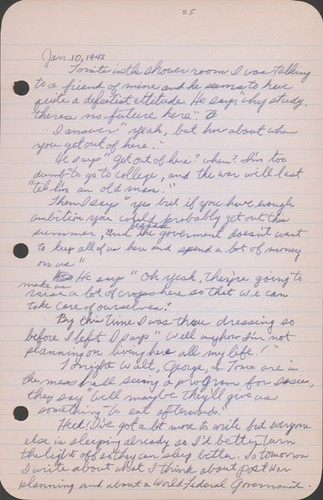 25
Jan. 10, 1943
Tonite in the shower room I was talking
to a friend of mine and he seems to have
quite a defeatist attitude. He says "why study,
theres no future here."
I answer "yeah, but how about when
you get out of here."
He says "Get out of here? when? I'm too
dumb to go to college, and the war will last
'til I'm an old man."
Then I say "yes but if you have enough
ambition you could probably get out this
summer, and the government doesn't want
to keep all of us here and spend a lot of money
on us"
He says "Oh yeah, they're going to
make us
raise a lot of crops here so that we can
take care of ourselves."
By this time I was thru dressing so
before I left I says "Well anyhow I'm not
planning on living here all my life!"
Tonight Walt, George, & Tom are in
the mess hall seeing a program for
they say "Well maybe they'll give us
something to eat afterwards."
Heck! I've got a lot more to write but everyone
else is sleeping already so I'd better turn
the lights off so they can sleep better. So tomorrow
I write about what I think about post war
planning and about a World Federal Government.